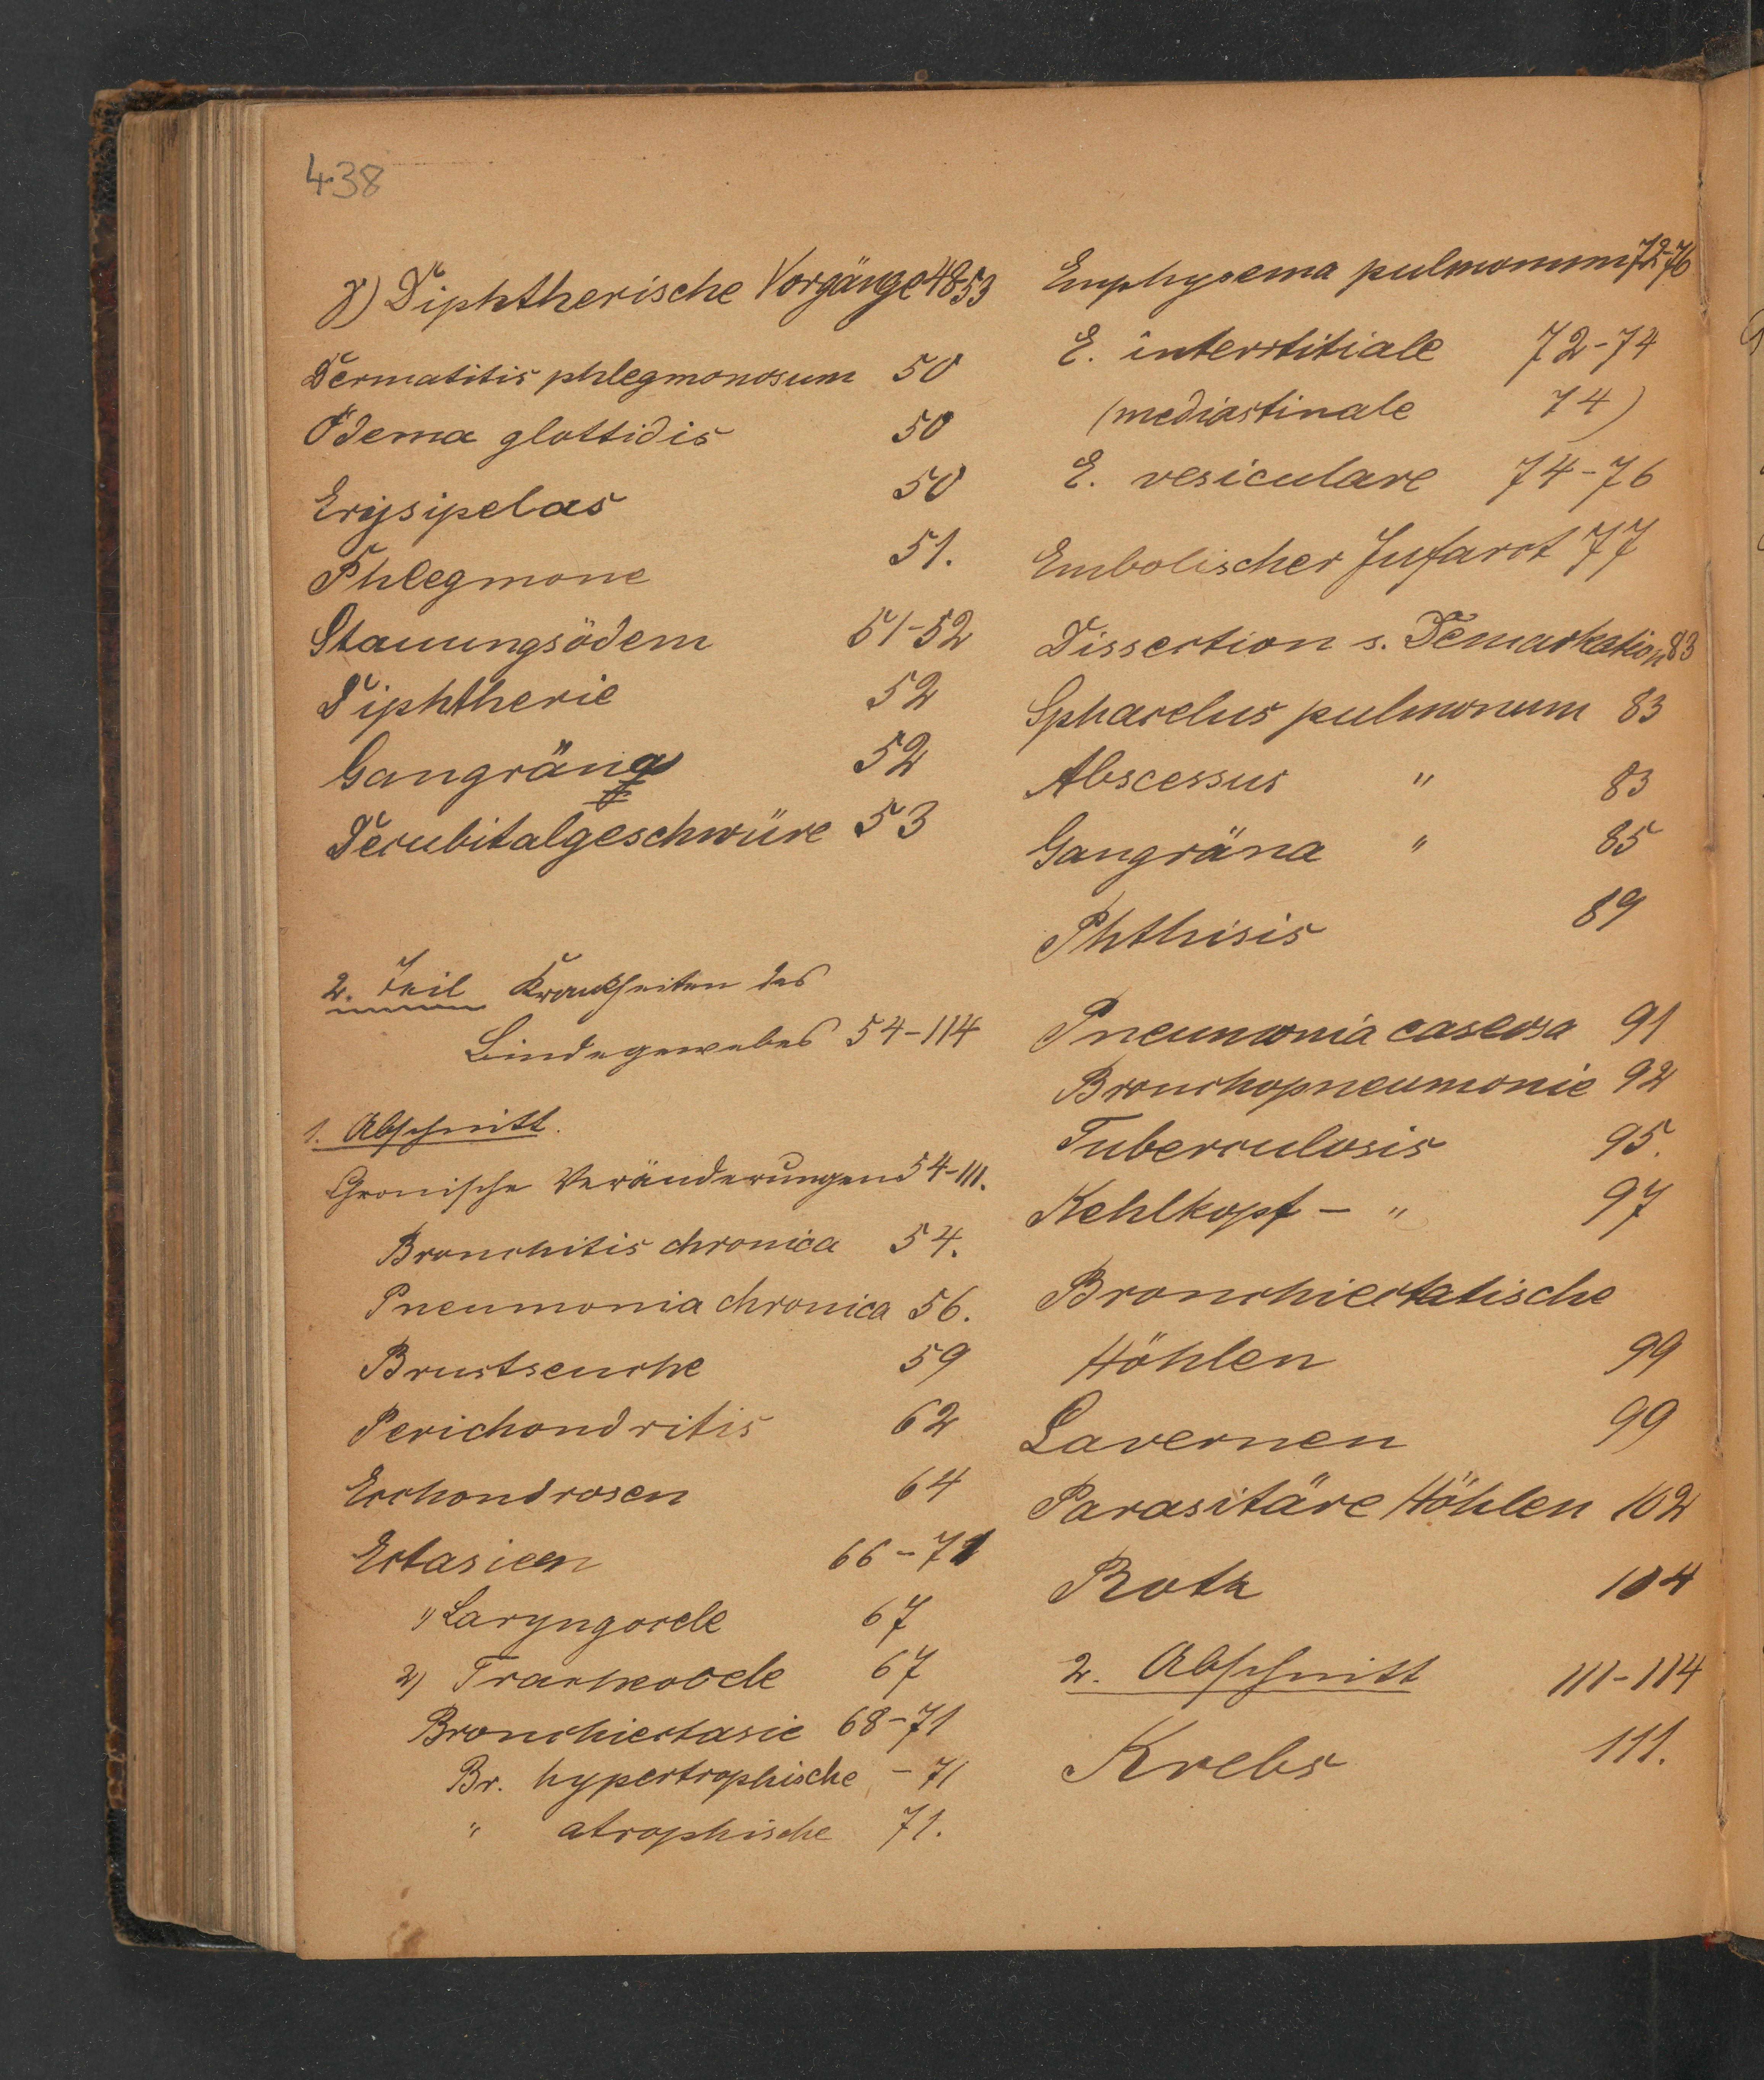 438
γ) Diphtherische Vorgänge 48-53
Dermatitis phlegmonosum 50
Ödema glottidis 50
Erysipelas 50
Phlegmone 51.
Stauungsödem 51-52
Diphtherie 52
Gangräna 52
Decubitalgeschwüre 53
2. Teil Krankheiten des
Bindegewebes 54-114
1. Abschnitt.
Chronische Veränderungen 54-111.
Bronchitis chronica 54.
Pneumonia chronica 56.
Brustseuche 59
Perichondritis 62
Ecchondrosen 64
Ectasieen 66-71
1) Laryngocele 67
2) Tracheocele 67
Bronchiectasie 68-71
Br. hypertrophische - 71
" atrophische 71.
Emphysema pulmonum 72-76
E. interstitiale 72-74
(mediastinale 74)
E. vesiculare 74-76
Embolischer Infarct 77
Dissection s. Demarkation 83
Sphacelus pulmonum 83
Abscessus " 83
Gangräna " 85
Phthisis 89
Pneumonia caseosa 91
Bronchopneumonie 92
Tuberculosis 95.
Kehlkopf - " 97
Bronchiectatische
Höhlen 99
Cavernen 99
Parasitäre Höhlen 102
Rotz 104
2. Abschnitt 111-114
Krebs 111.